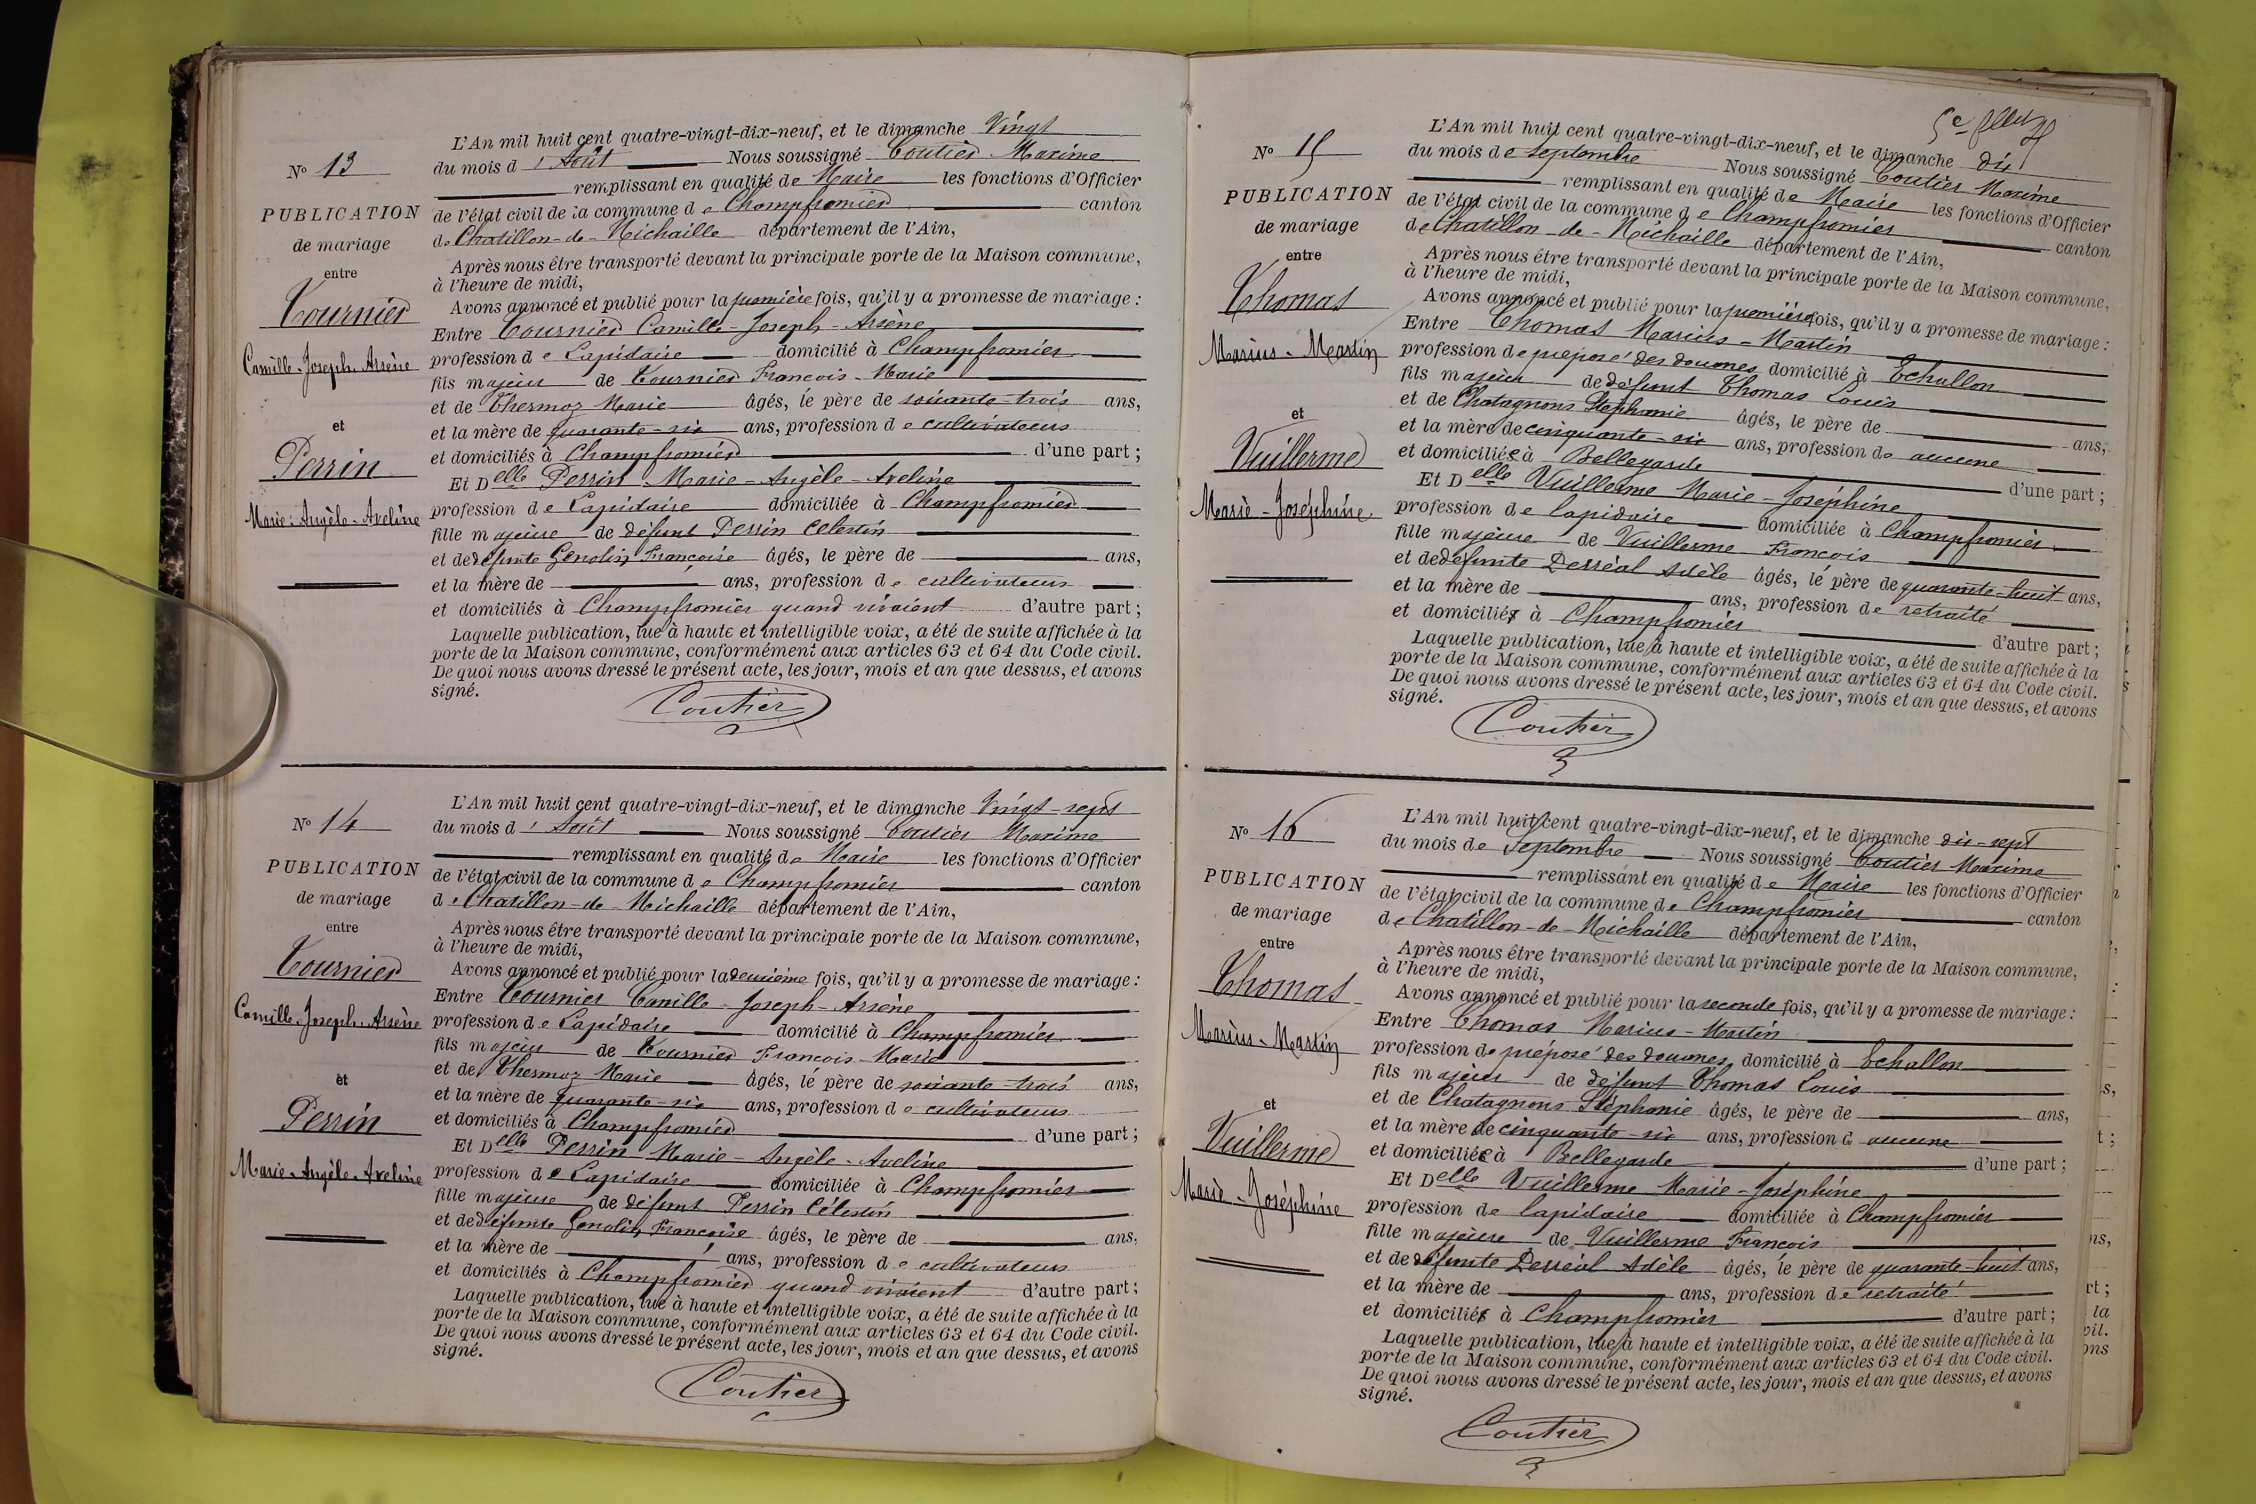 N° 13
PUBLICATION
de mariage
entre
Tournier
Camille-Joseph-Arsène
et
Perrin
Marie-Angèle-Aveline
L'An mil huit cent quatre-vingt-dix-neuf, et le dimanche Vingt
du mois d' Août Nous soussigné Coutier Maxime
remplissant en qualité de Maire les fonctions d'Officier
de l'état civil de la commune de Champfromier canton
de Chatillon-de-Michaille département de l'Ain,
Après nous être transporté devant la principale porte de la Maison commune,
à l'heure de midi,
Avons annoncé et publié pour la première fois, qu'il y a promesse de mariage :
Entre Tournier Camille-Joseph-Arsène
profession de Lapidaire domicilié à Champfromier
fils majeur de Tournier François-Marie
et de Thermoz Marie âgés, le père de soixante-trois ans,
et la mère de quarante-six ans, profession de cultivateurs
et domiciliés à Champfromier d'une part ;
Et Delle Perrin Marie-Angèle-Aveline
profession de Lapidaire domiciliée à Champfromier
fille majeure de défunt Perrin Célestin
et de défunte Genolin Françoise âgés, le père de ans,
et la mère de ans, profession de cultivateurs
et domiciliés à Champfromier quand vivaient d'autre part ;
Laquelle publication, lue à haute et intelligible voix, a été de suite affichée à la
porte de la Maison commune, conformément aux articles 63 et 64 du Code civil.
De quoi nous avons dressé le présent acte, les jour, mois et an que dessus, et avons
signé.
Coutier
N° 14
PUBLICATION
de mariage
entre
Tournier
Camille-Joseph-Arsène
et
Perrin
Marie-Angèle-Aveline
L'An mil huit cent quatre-vingt-dix-neuf, et le dimanche Vingt-sept
du mois d' Août Nous soussigné Coutier Maxime
remplissant en qualité de Maire les fonctions d'Officier
de l'état civil de la commune de Champfromier canton
de Chatillon-de-Michaille département de l'Ain,
Après nous être transporté devant la principale porte de la Maison commune,
à l'heure de midi,
Avons annoncé et publié pour la deuxième fois, qu'il y a promesse de mariage :
Entre Tournier Camille-Joseph-Arsène
profession de Lapidaire domicilié à Champfromier
fils majeur de Tournier François-Marie
et de Thermoz Marie âgés, le père de soixante-trois ans,
et la mère de quarante-six ans, profession de cultivateurs
et domiciliés à Champfromier d'une part ;
Et Delle Perrin Marie-Angèle-Aveline
profession de Lapidaire domiciliée à Champfromier
fille majeure de défunt Perrin Célestin
et de défunte Genolin Françoise âgés, le père de ans,
et la mère de ans, profession de cultivateurs
et domiciliés à Champfromier quand vivaient d'autre part ;
Laquelle publication, lue à haute et intelligible voix, a été de suite affichée à la
porte de la Maison commune, conformément aux articles 63 et 64 du Code civil.
De quoi nous avons dressé le présent acte, les jour, mois et an que dessus, et avons
signé.
Coutier
N° 15
PUBLICATION
de mariage
entre
Thomas
Marius-Martin
et
Vuillerme
Marie-Joséphine
L'An mil huit cent quatre-vingt-dix-neuf, et le dimanche dix
du mois de Septembre Nous soussigné Coutier Maxime
remplissant en qualité de Maire les fonctions d'Officier
de l'état civil de la commune de Champfromier canton
de Chatillon-de-Michaille département de l'Ain,
Après nous être transporté devant la principale porte de la Maison commune,
à l'heure de midi,
Avons annoncé et publié pour la première fois, qu'il y a promesse de mariage :
Entre Thomas Marius-Martin
profession de préposé des douanes domicilié à Echallon
fils majeur de défunt Thomas Louis
et de Chatagnons Stéphanie âgés, le père de ans,
et la mère de cinquante-six ans, profession de aucune
et domiciliée à Bellegarde d'une part ;
Et Delle Vuillerme Marie-Joséphine
profession de lapidaire domiciliée à Champfromier
fille majeure de Vuillerme François
et de défunte Desréal Adèle âgés, le père de quarante-huit ans,
et la mère de ans, profession de retraité
et domicilié à Champfromier d'autre part ;
Laquelle publication, lue à haute et intelligible voix, a été de suite affichée à la
porte de la Maison commune, conformément aux articles 63 et 64 du Code civil.
De quoi nous avons dressé le présent acte, les jour, mois et an que dessus, et avons
signé.
Coutier
N° 16
PUBLICATION
de mariage
entre
Thomas
Marius-Martin
et
Vuillerme
Marie-Joséphine
L'An mil huit cent quatre-vingt-dix-neuf, et le dimanche dix-sept
du mois de Septembre Nous soussigné Coutier Maxime
remplissant en qualité de Maire les fonctions d'Officier
de l'état civil de la commune de Champfromier canton
de Chatillon-de-Michaille département de l'Ain,
Après nous être transporté devant la principale porte de la Maison commune,
à l'heure de midi,
Avons annoncé et publié pour la seconde fois, qu'il y a promesse de mariage :
Entre Thomas Marius-Martin
profession de préposé des douanes domicilié à Echallon
fils majeur de défunt Thomas Louis
et de Chatagnons Stéphanie âgés, le père de ans,
et la mère de cinquante-six ans, profession d aucune
et domiciliée à Bellegarde d'une part ;
Et Delle Vuillerme Marie-Joséphine
profession de lapidaire domiciliée à Champfromier
fille majeure de Vuillerme François
et de défunte Desréal Adèle âgés, le père de quarante-huit ans,
et la mère de ans, profession de retraité
et domicilié à Champfromier d'autre part ;
Laquelle publication, lue à haute et intelligible voix, a été de suite affichée à la
porte de la Maison commune, conformément aux articles 63 et 64 du Code civil.
De quoi nous avons dressé le présent acte, les jour, mois et an que dessus, et avons
signé.
Coutier